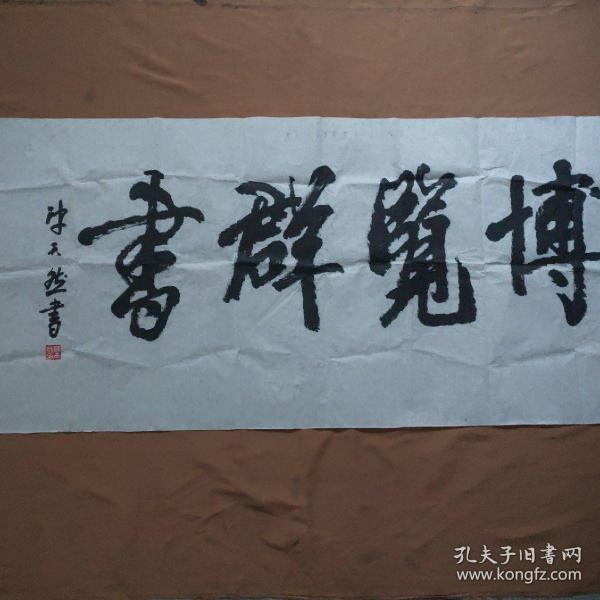 博覽群書
陈天然書
孔夫子旧書网
www.kongfz.com